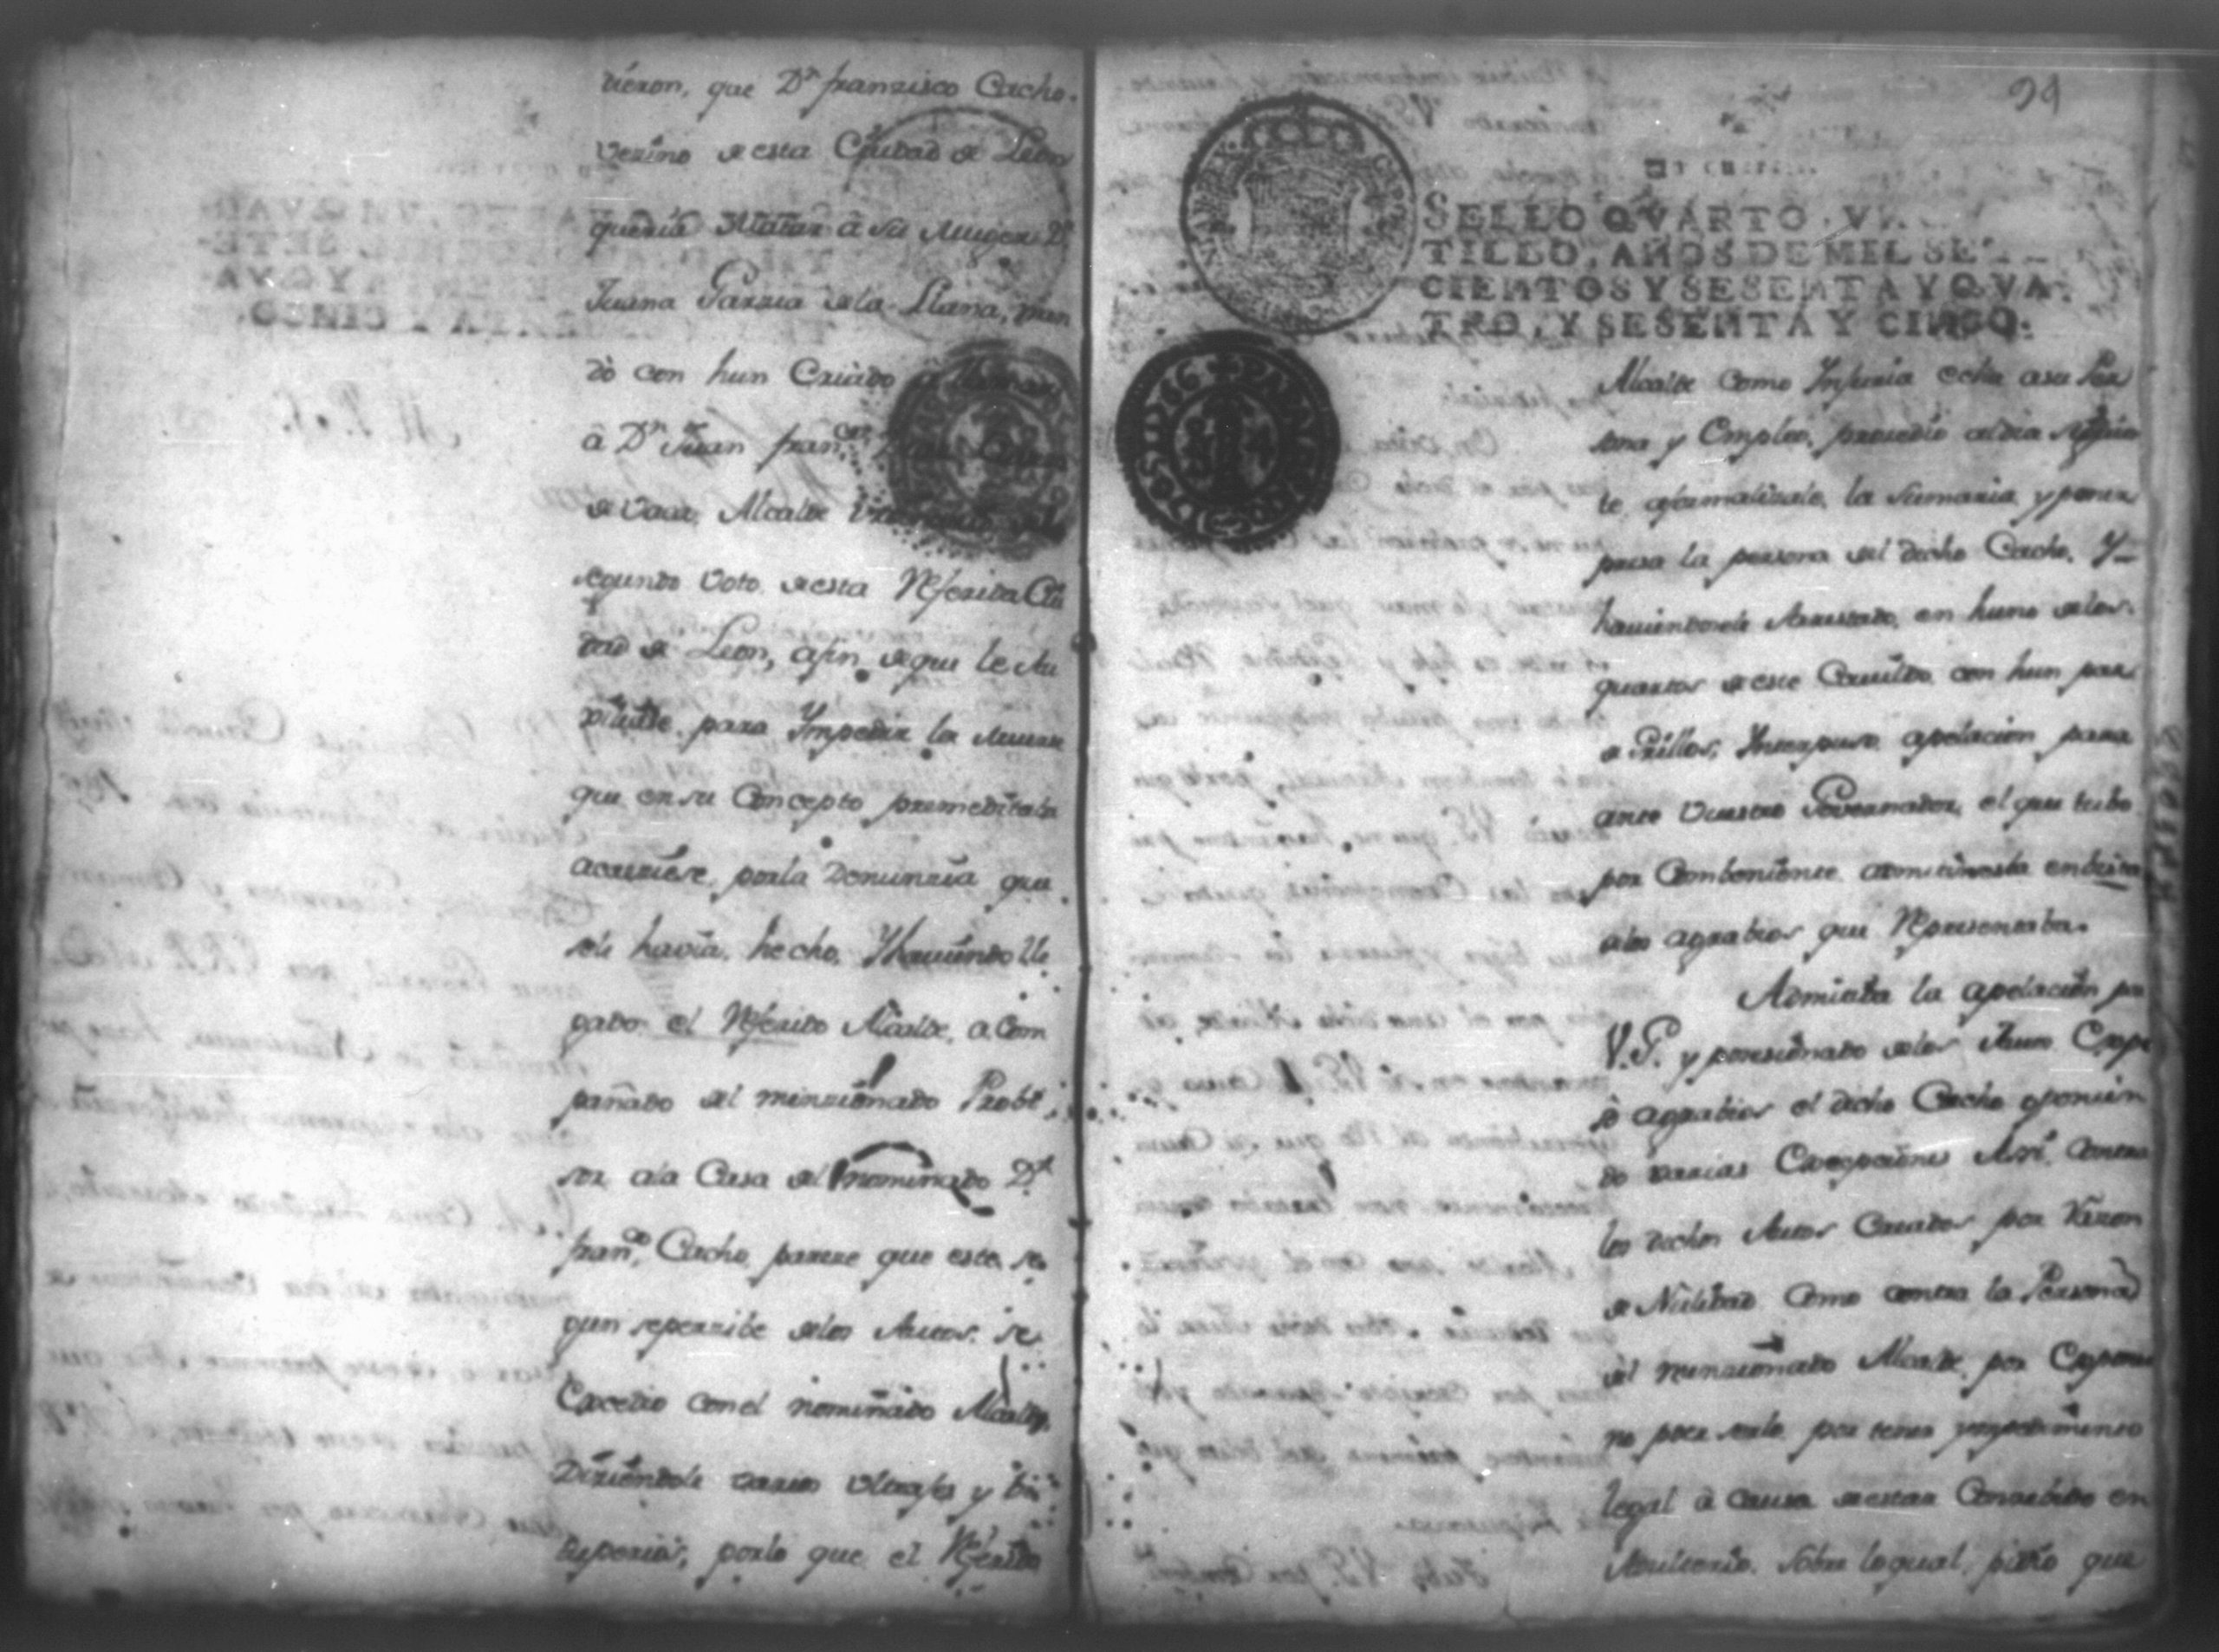 dieron, que Dn franzisco Cacho.
Vezino de esta Ciudad de Leon
queria Matar â su Muger Da
Juana Garzia de la Llana, man
dò con hun Criado
â Dn Juan franco
de Vaca, Alcalde
segundo Voto de esta Referida Ciu
dad de Leon, afin de que le Au
xiliase, para Ympedir la Muerte
que en su Concepto premeditaba
acaeziese, por la Denunzia que
sele havia, hecho, Y haviendo lle
gado el Referido Alcalde, a Com
pañado del menzionado Probi
sor ala Casa del nominado Dn
franco Cacho, pareze que este, se
gun seperzibe delos Autos, se
Excedio con el nominado Alcalde,
Diziendole varios Ultrajes y bi
tuperios, porlo que el Referido
94
SELLO QVARTO, VN
TILLO, AÑOS DE MIL SETE
CIENTOS Y SESENTA Y QVA
TRO, Y SESENTA Y CINCO.
Alcalde Como Ynjuria echa asu Per
sona y Empleo, prozedio aldia siguien
te, aformalizale, la Sumaria, y poner
presa la persona del dicho Cacho, Y
haviendole Arrestado, en huno delos
quartos de este Cavildo, con hun par
de Grillos, Ynterpuso, apelacion para
ante Vuestro Governador, el que tubo
por Combeniente, admitirsela en bista
alos agrabios que Representaba.
Admitida la apelacion por
V.S. y posesionado delos Autos Expe
so agrabios el dicho Cacho oponien
do varias Excepciones Asi, Contra
los dichos Autos Criados por Vizion
de Nulidad Como contra la Persona
del menzionado Alcalde, por Exponer
no poer serlo, por tener ympedimento
legal â causa de estar Conzebido en
Adulterio, Sobre lo qual, pidio que